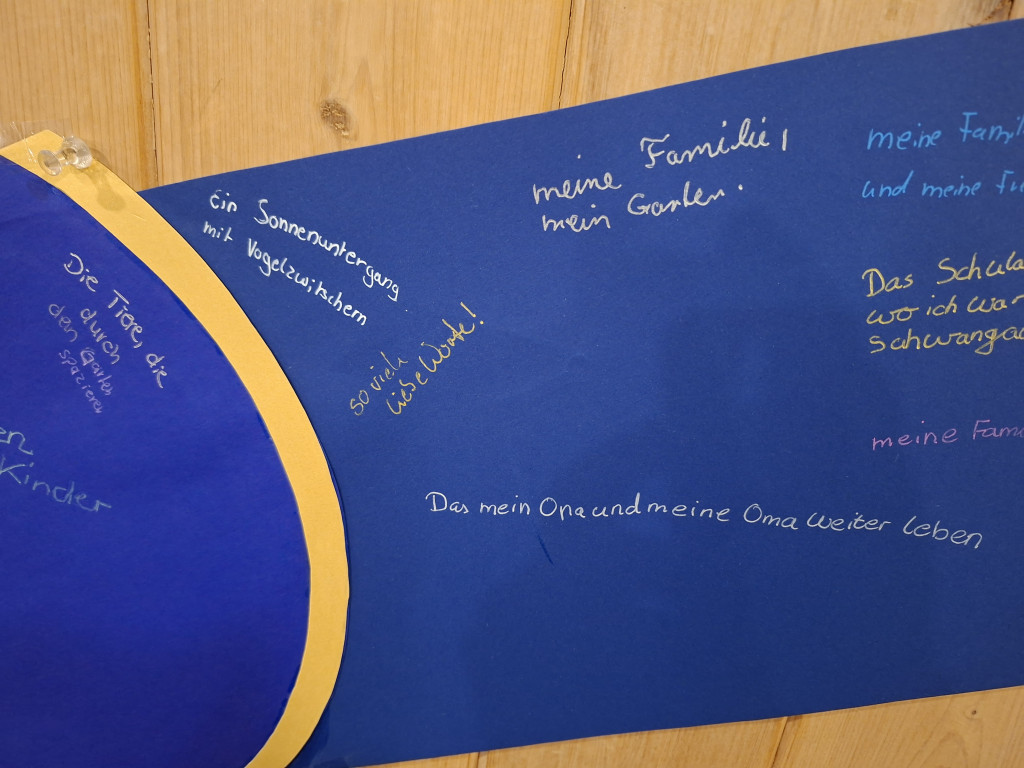 Die Tiere, die
durch
den Garten
spazieren
en
Kinder
Ein Sonnenuntergang
mit Vogelzwitschern
so viele
liebe Worte!
meine Familie,
mein Garten.
meine Famil
und meine Fr
Das Schula
wo ich war
schwanga
meine Fami
Das mein Opa und meine Oma weiter leben